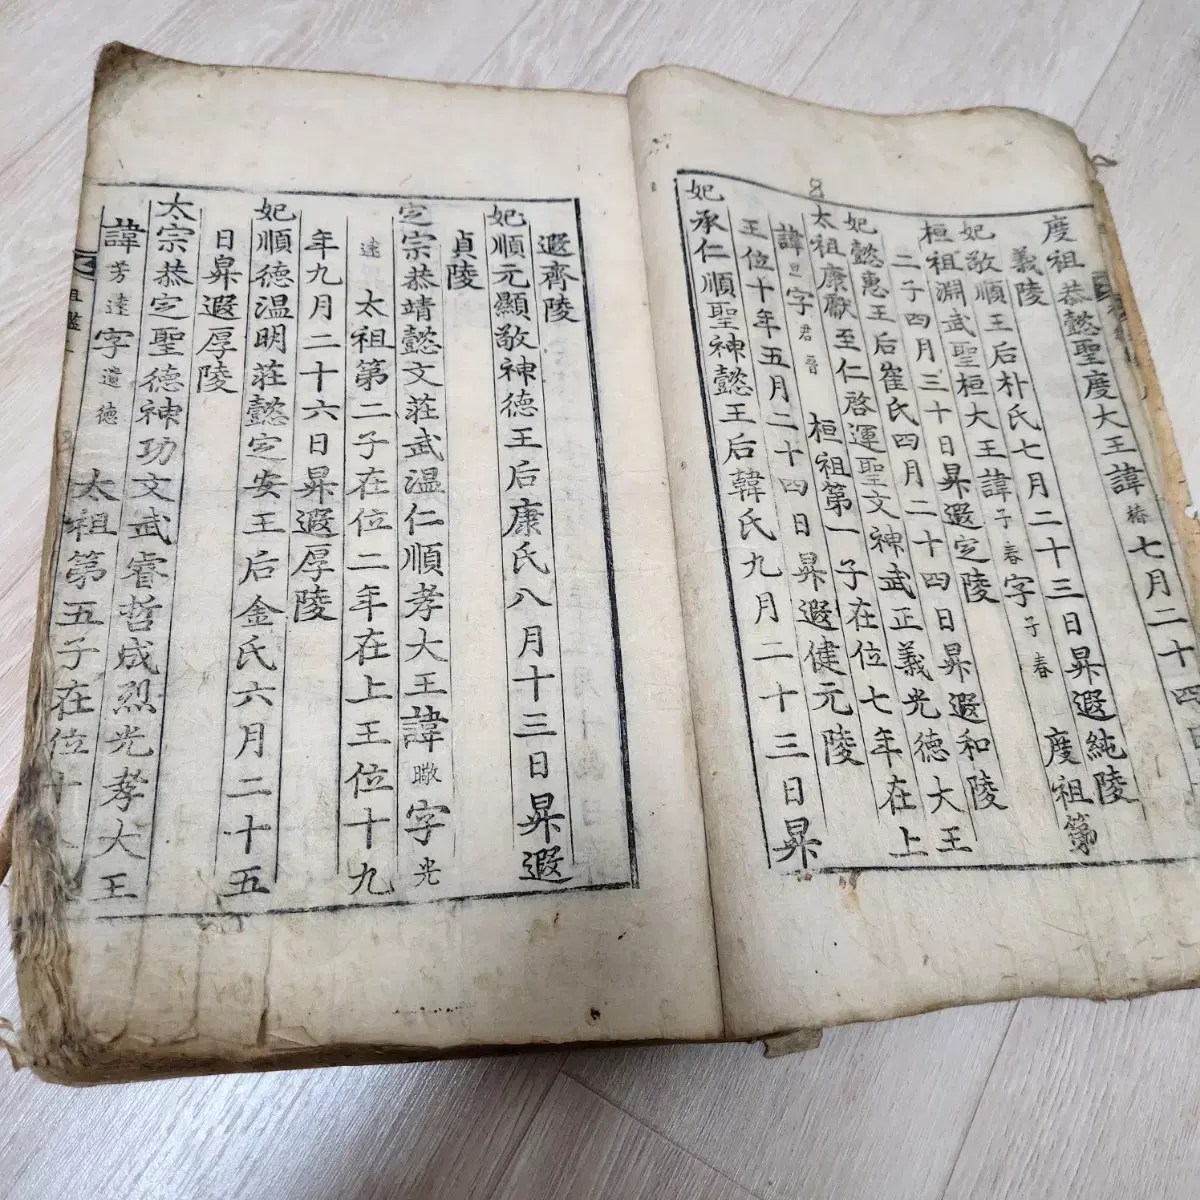 度祖恭懿聖度大王諱椿七月二十四
義陵
妃敬順王后朴氏七月二十三日昇遐純陵
桓祖淵武聖桓大王諱子春字子春 度祖第
二子四月三十日昇遐定陵
妃懿惠王后崔氏四月二十四日昇遐和陵
太祖康獻至仁啓運聖文神武正義光德大王
諱旦字君晉 桓祖第一子在位七年在上
王位十年五月二十四日昇遐健元陵
妃承仁順聖神懿王后韓氏九月二十三日昇
遐齊陵
妃順元顯敬神德王后康氏八月十三日昇遐
貞陵
定宗恭靖懿文莊武溫仁順孝大王諱曔字光
遠 太祖第二子在位二年在上王位十九
年九月二十六日昇遐厚陵
妃順德溫明莊懿定安王后金氏六月二十五
日昇遐厚陵
太宗恭定聖德神功文武睿哲成烈光孝大王
諱芳遠字遺德 太祖第五子在位十八
8